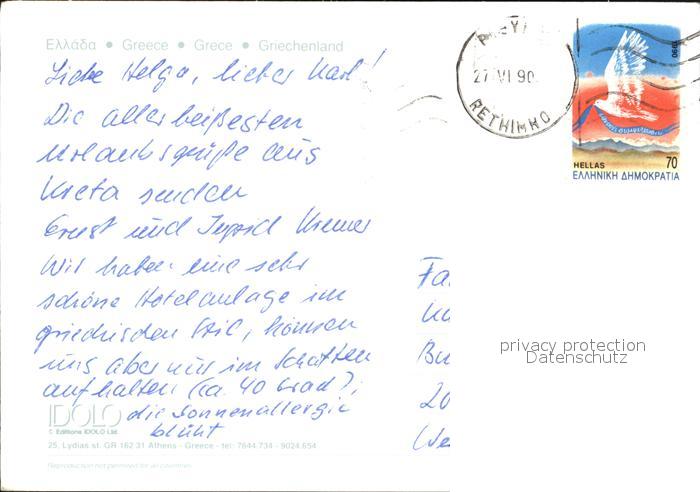 Ελλάδα • Greece • Grece • Griechenland
Liebe Helga, lieber Karl!
Die allerheißesten
Urlaubsgrüße aus
Kreta senden
Ernst und Ingrid Kremer
Wir haben eine sehr
schöne Hotelanlage im
griechischen Stil, können
uns aber nur im Schatten
aufhalten (ca. 40 Grad)
die Sonnenallergie
blüht
IDOLO
© Editions IDOLO Ltd.
25, Lydias st. GR 162 31 Athens - Greece - tel: 7644.734 - 9024.654
Reproduction not permitted for all countries
27 VI 90
RETHIMNO
1990
HELLAS 70
ΕΛΛΗΝΙΚΗ ΔΗΜΟΚΡΑΤΙΑ
Fa
Bu
20
We
privacy protection
Datenschutz